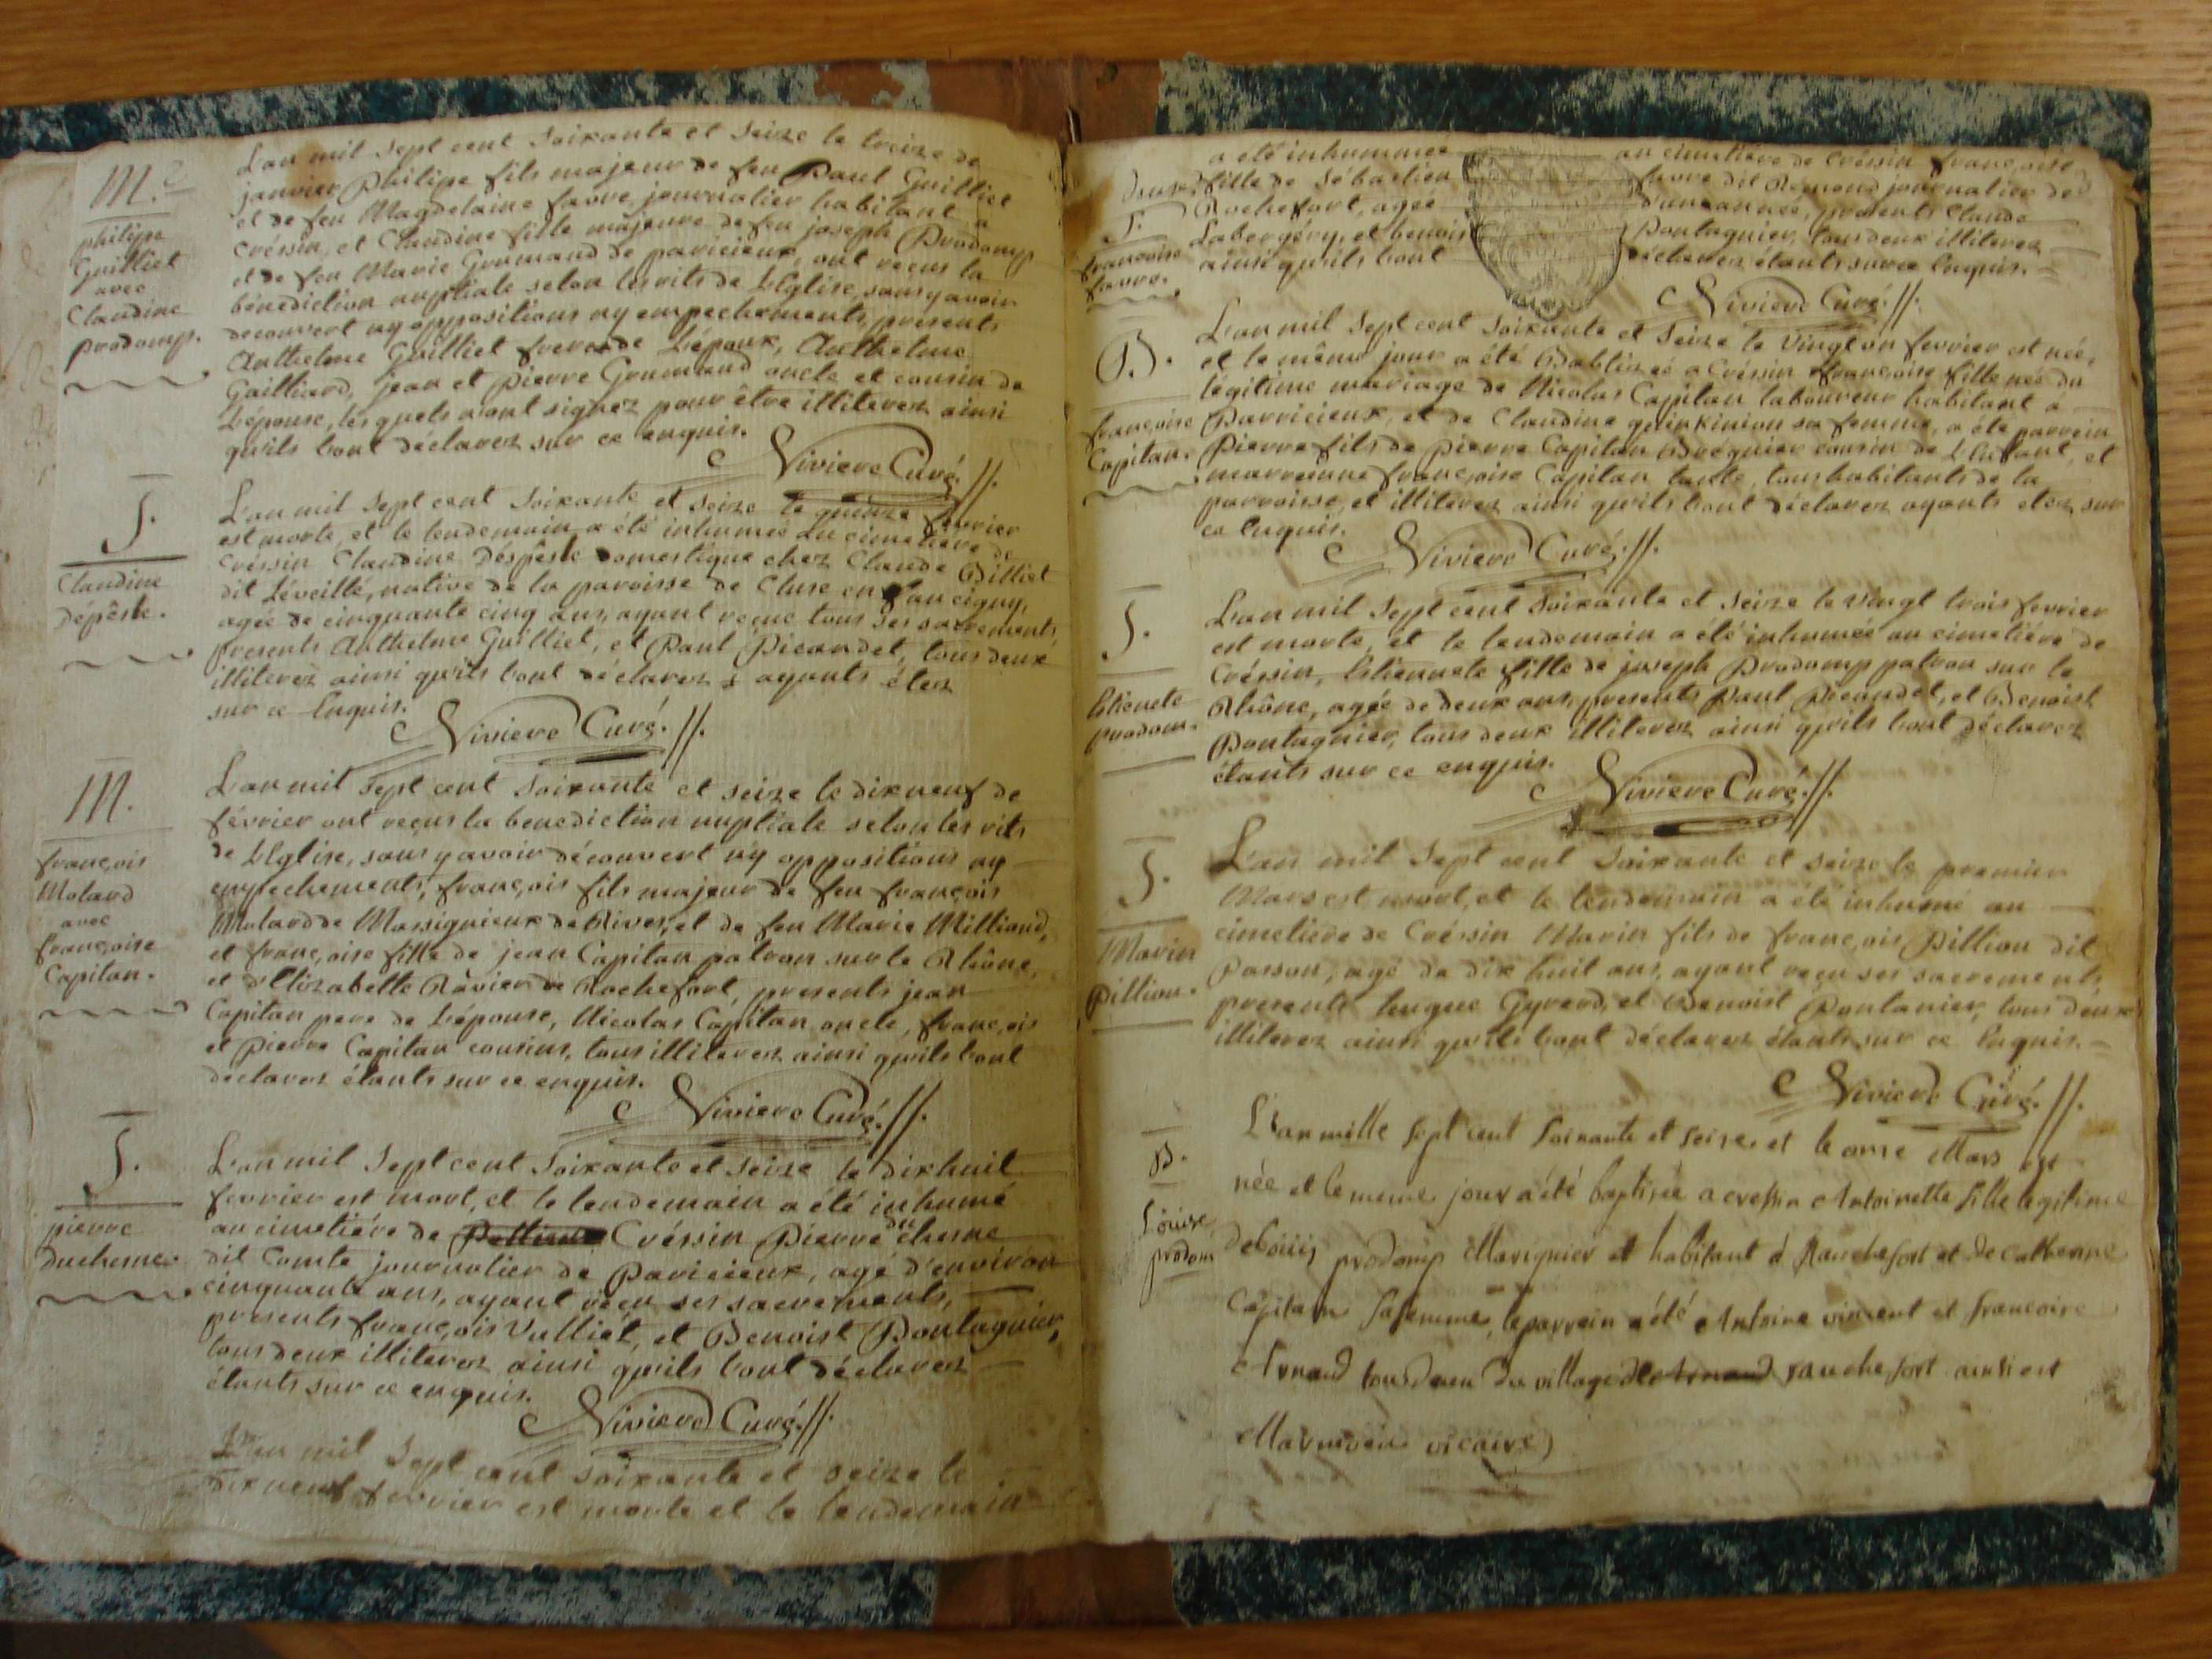 M.e
philipe
Guilliet
avec
Claudine
prodomp.
L'an mil Sept cent Soixante et Seize le treize de
janvier Philipe fils majeur de feu Paul Guilliet
et de feu Magdelaine favre, journalier habitant a
Créssin, et Claudine fille majeure de feu joseph Prodomp
et de feu Marie Grumand de paricieux, ont reçus la
bénediction nuptiale selon les rits de L'Eglise, sans y avoir
decouvert ny oppositions ny empechements, présents
Anthelme Guilliet frere de L'époux, Anthelme
Gailliard, jean et pierre Grumand oncle et cousin de
L'épouse, les quels n'ont signez pour être illiterez ainsi
qu'ils l'ont déclarez sur ce enquis.
Niviere Curé.
S.
Claudine
Dépêste.
L'an mil Sept cent Soixante et seize le quinze fevrier
est morte, et le lendemain a été inhumée au cimetiere de
Créssin Claudine Déspêste domestique chez Claude Billiet
dit Léveillé, native de la paroisse de Cluse en faucigny,
agée de cinquante cinq ans, ayant reçue tous ses sacrements,
presents Anthelme Guilliet, et Paul Picandet, tous deux
illiterez ainsi qu'ils l'ont déclarez ayants étez
sur ce Enquis.
Niviere Curé.
M.
françois
Molard
avec
françoise
Capitan.
L'an mil Sept cent Soixante et seize le dix neuf de
février ont reçus la benediction nuptiale selon les rits
de L'Eglise, sans y avoir découvert ny oppositions ny
empechements, françois fils majeur de feu françois
Molard de Massignieux de Rives, et de feu Marie Milliand,
et françoise fille de jean Capitan patron sur le Rhône,
et d'Elizabette Ravier de Rochefort, presents jean
Capitan pere de L'épouse, Nicolas Capitan oncle, françois
et Pierre Capitan cousins, tous illiterez ainsi qu'ils l'ont
declarez étants sur ce enquis.
Niviere Curé.
S.
pierre
duchesne.
L'an mil Sept cent Soixante et Seize le dix huit
fevrier est mort, et le lendemain a été inhumé
au cimetiére de Créssin Pierre du chesne
dit Comte journalier de Paricieux, agé d'environ
cinquante ans, ayant reçu ses sacrements,
presents françois Vulliet, et Benoist Pontagnier,
tous deux illiterez ainsi qu'ils l'ont déclarez
étants sur ce enquis.
Niviere Curé.
L'an mil Sept cent soixante et seize le
dix neuf fevrier est morte et le lendemain
S.
françoise
favre.
a été inhummée au cimetiére de Créssin françoise
fille de Sébastien favre dit Remond journalier de
Rochefort, agée d'une année, presents Claude
Labergéry, et benoist Pontagnier, tous deux illiterez
ainsi qu'ils l'ont déclarez étants sur ce Enquis.
Niviere Curé.
B.
françoise
Capitan.
L'an mil Sept cent Soixante et Seize le Vingt un fevrier est née,
et le même jour a été Babtizeé a Créssin françoise fille née du
légitime mariage de Nicolas Capitan laboureur habitant à
Parricieux, et de Claudine quinkinion sa femme, a été parrein
Pierre fils de pierre Capitan cousin de L'Enfant, et
marreinne françoise Capitan tante, tous habitants de la
parroisse, et illiterez ainsi qu'ils l'ont déclarez ayants etez sur
ce Enquis.
Niviere Curé.
S.
Etienete
prodom.
L'an mil Sept cent Soixante et Seize le Vingt trois fevrier
est morte, et le lendemain a été inhumée au cimetiére de
Créssin, Etiennete fille de joseph Prodomp patron sur le
Rhône, agée de deux ans, presents Paul Picandet, et Benoist
Pontagnier, tous deux illiterez ainsi qu'ils l'ont déclarez
étants sur ce enquis.
Niviere Curé.
S.
Marin
Pillion.
L'an mil Sept cent Soixante et seize le premier
Mars est mort, et le lendemain a été inhumé au
cimetiére de Créssin Marin fils de françois Pillion dit
Passon, agé de dix huit ans, ayant reçu ses sacrements,
presents hugue Gyrerd, et Benoist Pontanier, tous deux
illiterez ainsi qu'ils l'ont déclarez étants sur ce Enquis.
Niviere Curé.
B.
Louise
prodom
L'an mille sept cent soixante et seize et le onze Mars est
née et le meme jour a été baptisée a cressin Antoinette fille legitime
de Louis prodomp Marignier et habitant à Rauchefort et de Catherine
Capitan sa femme, le parrein a été Antoine vincent et francoise
Arnaud tous deux du village de rauchefort ainsi est
vicaire